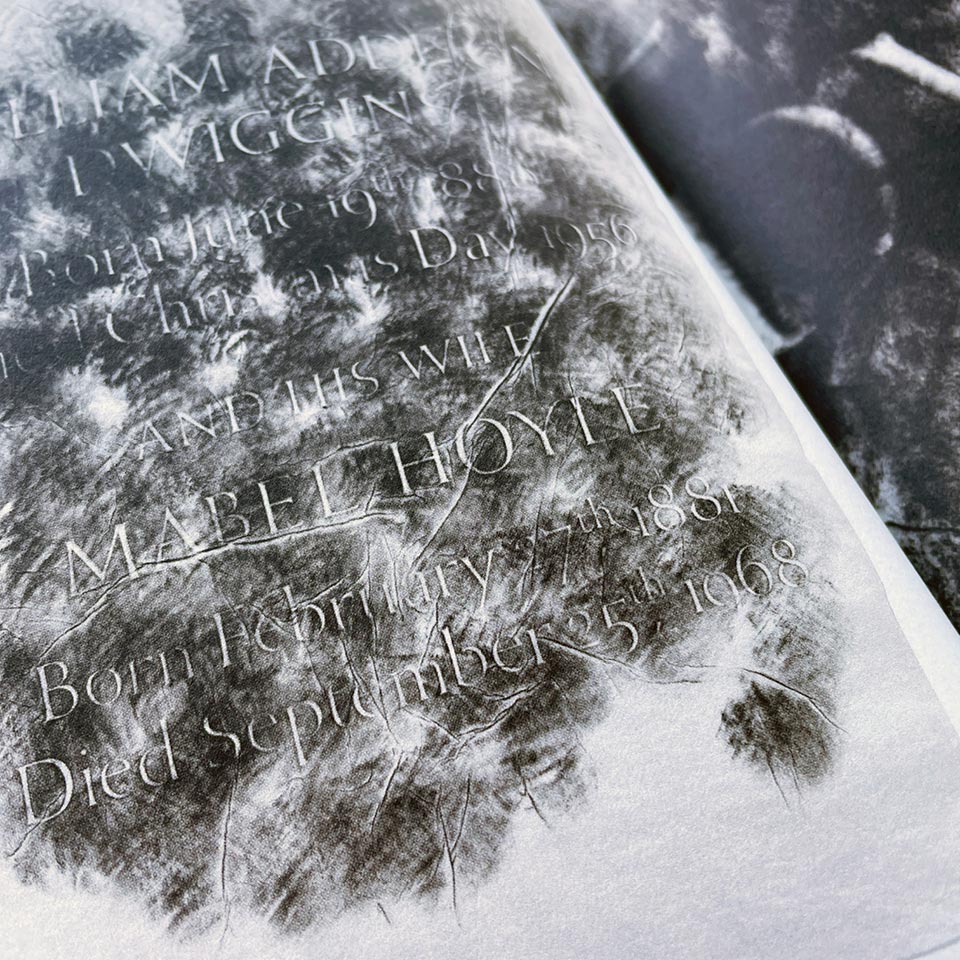 WILLIAM ADDISON
DWIGGINS
Born June 19th
Christmas Day 1956
AND HIS WIFE
MABEL HOYLE
Born February 27th 1881
Died September 25th 1968